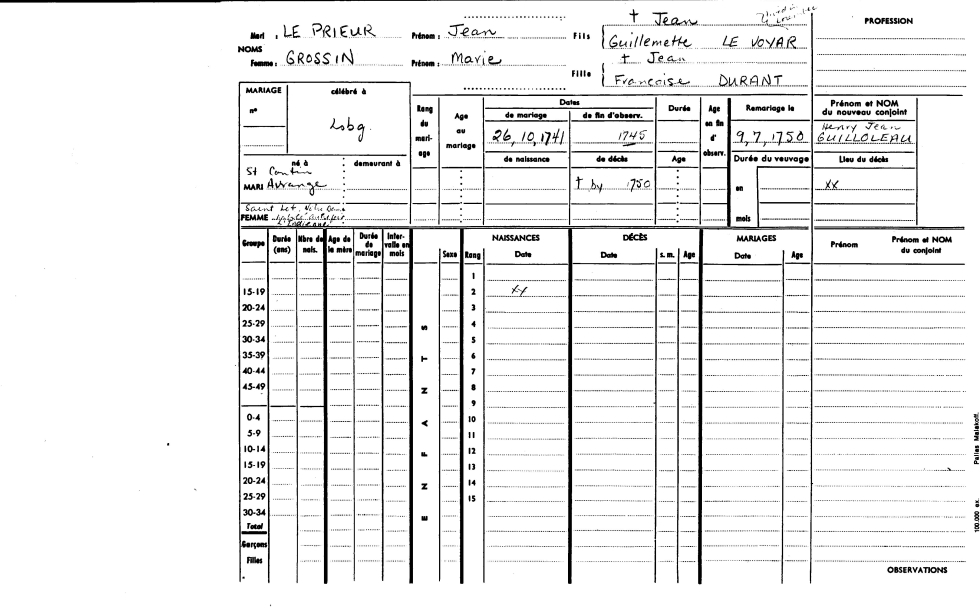 † Jean
PROFESSION
Mari : LE PRIEUR Prénom : Jean Fils Guillemette LE VOYAR
NOMS
† Jean
Femme : GROSSIN Prénom : Marie Fille Francoise DURANT
MARIAGE célébré à
n° Lobg.
Rang du mariage Age au mariage Dates Durée Age en fin d'observ. Remariage le Prénom et NOM du nouveau conjoint
de mariage de fin d'observ.
26, 10, 1741 1745 9, 7, 1750 Henry Jean GUILLOLEAU
né à demeurant à de naissance de décès Age Durée du veuvage Lieu du décès
St
MARI † by 1750 en xx
Saint Notre Dame
FEMME mois
Groupe Durée (ans) Nbre de nais. Age de la mère Durée de mariage Intervalle en mois Sexe Rang NAISSANCES Date DÉCÈS Date s. m. Age MARIAGES Date Age Prénom Prénom et NOM du conjoint
1
15-19 2 xx
20-24 3
25-29 S 4
30-34 5
35-39 T 6
40-44 7
45-49 N 8
9
0-4 A 10
5-9 11
10-14 F 12
15-19 13
20-24 N 14
25-29 15
30-34 E
Total
Garçons
Filles
OBSERVATIONS
100.000 ex. Pallas Malakoff.